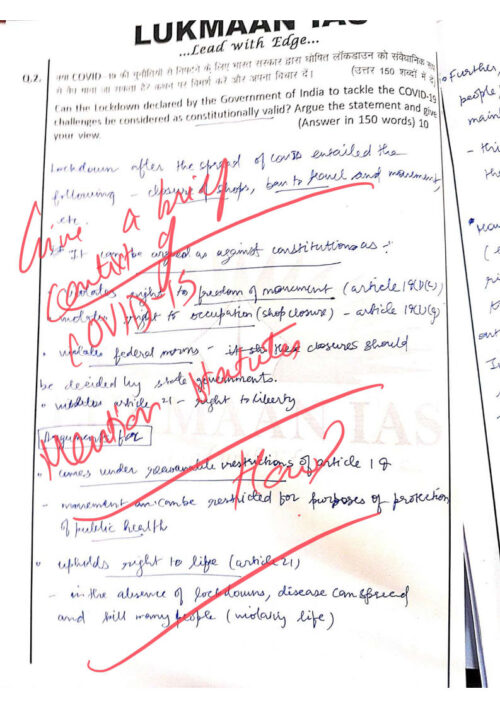 LUKMAAN IAS
...Lead with Edge...
Q.2. क्या COVID-19 की चुनौतियों से निपटने के लिए भारत सरकार द्वारा घोषित लॉकडाउन को संवैधानिक रूप
से वैध माना जा सकता है? कथन पर विमर्श करें और अपना विचार दें। (उत्तर 150 शब्दों में दें
Can the Lockdown declared by the Government of India to tackle the COVID-19
challenges be considered as constitutionally valid? Argue the statement and give
your view. (Answer in 150 words) 10
Lockdown after the spread of covid entailed the
following - closure of shops, ban to travel and movement,
etc.
It can be argued as against constitution as :-
violates right to freedom of movement (article 19(1)
violates right to occupation (shop closure) - article 19(1)(g)
• violates federal norms - these closures should
be decided by state governments.
• violates article 21 - right to liberty
Arguments for
• comes under reasonable restrictions of article 19
- movement can be restricted for purposes of protection
of public health
• upholds right to life (article 21)
- in the absence of lockdowns, disease can spread
and kill many people (violating life)
Give a brief
context of
COVID-19
Mention Statutes
How?
Further,
people
main